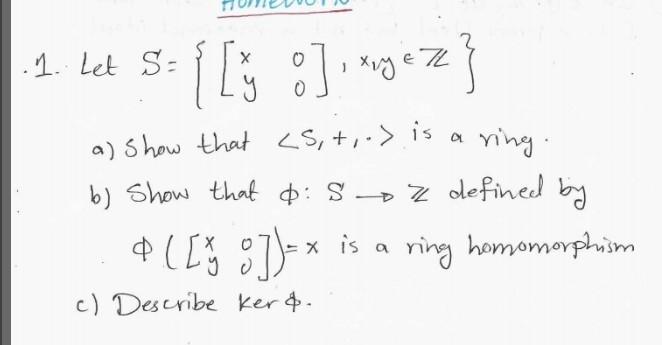 Homework
1. Let S = { [x 0; y 0], x,y ∈ ℤ }
a) Show that <S,+,·> is a ring.
b) Show that φ: S → ℤ defined by
φ([x 0; y 0]) = x is a ring homomorphism
c) Describe ker φ.